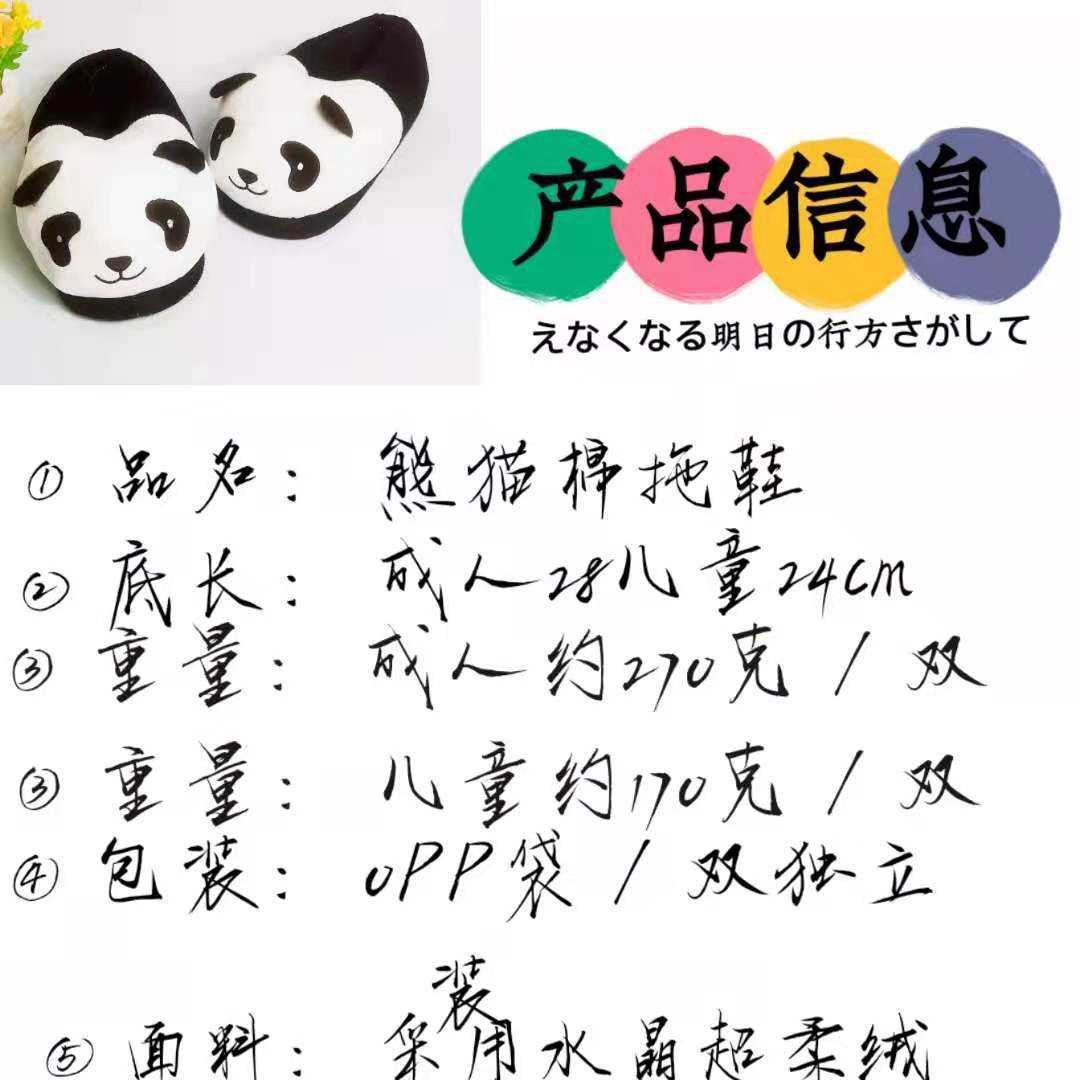 产品信息
えなくなる明日の行方さがして
① 品名: 熊猫棉拖鞋
② 底长: 成人28儿童24cm
③ 重量: 成人约270克 / 双
③ 重量: 儿童约170克 / 双
④ 包装: OPP袋 / 双独立
装
⑤ 面料: 采用水晶超柔绒